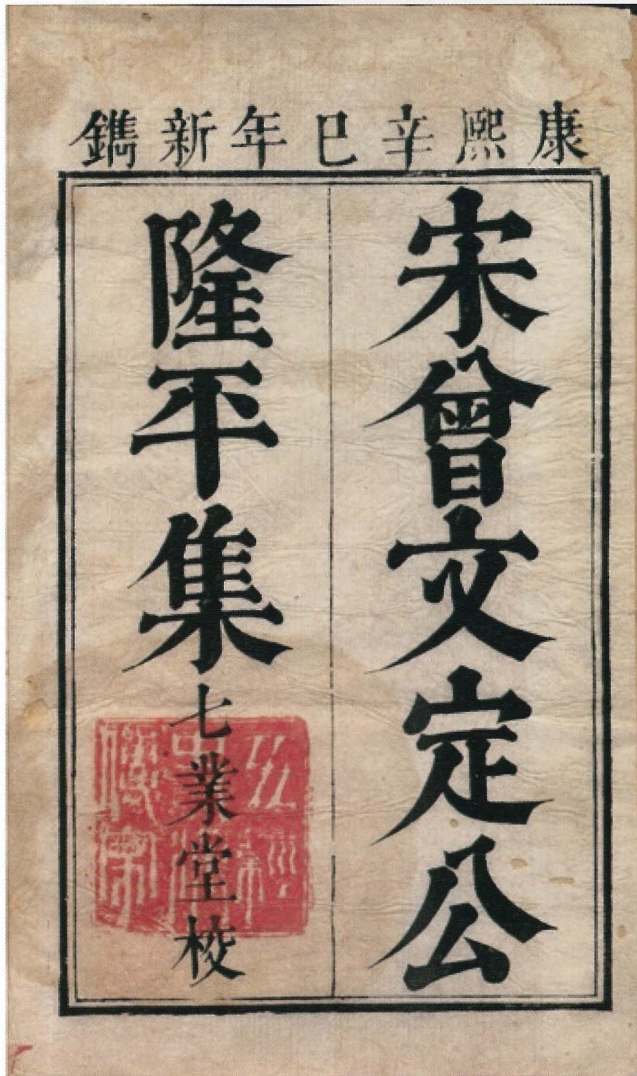 康熙辛巳年新鐫
宋曾文定公
隆平集
七業堂校